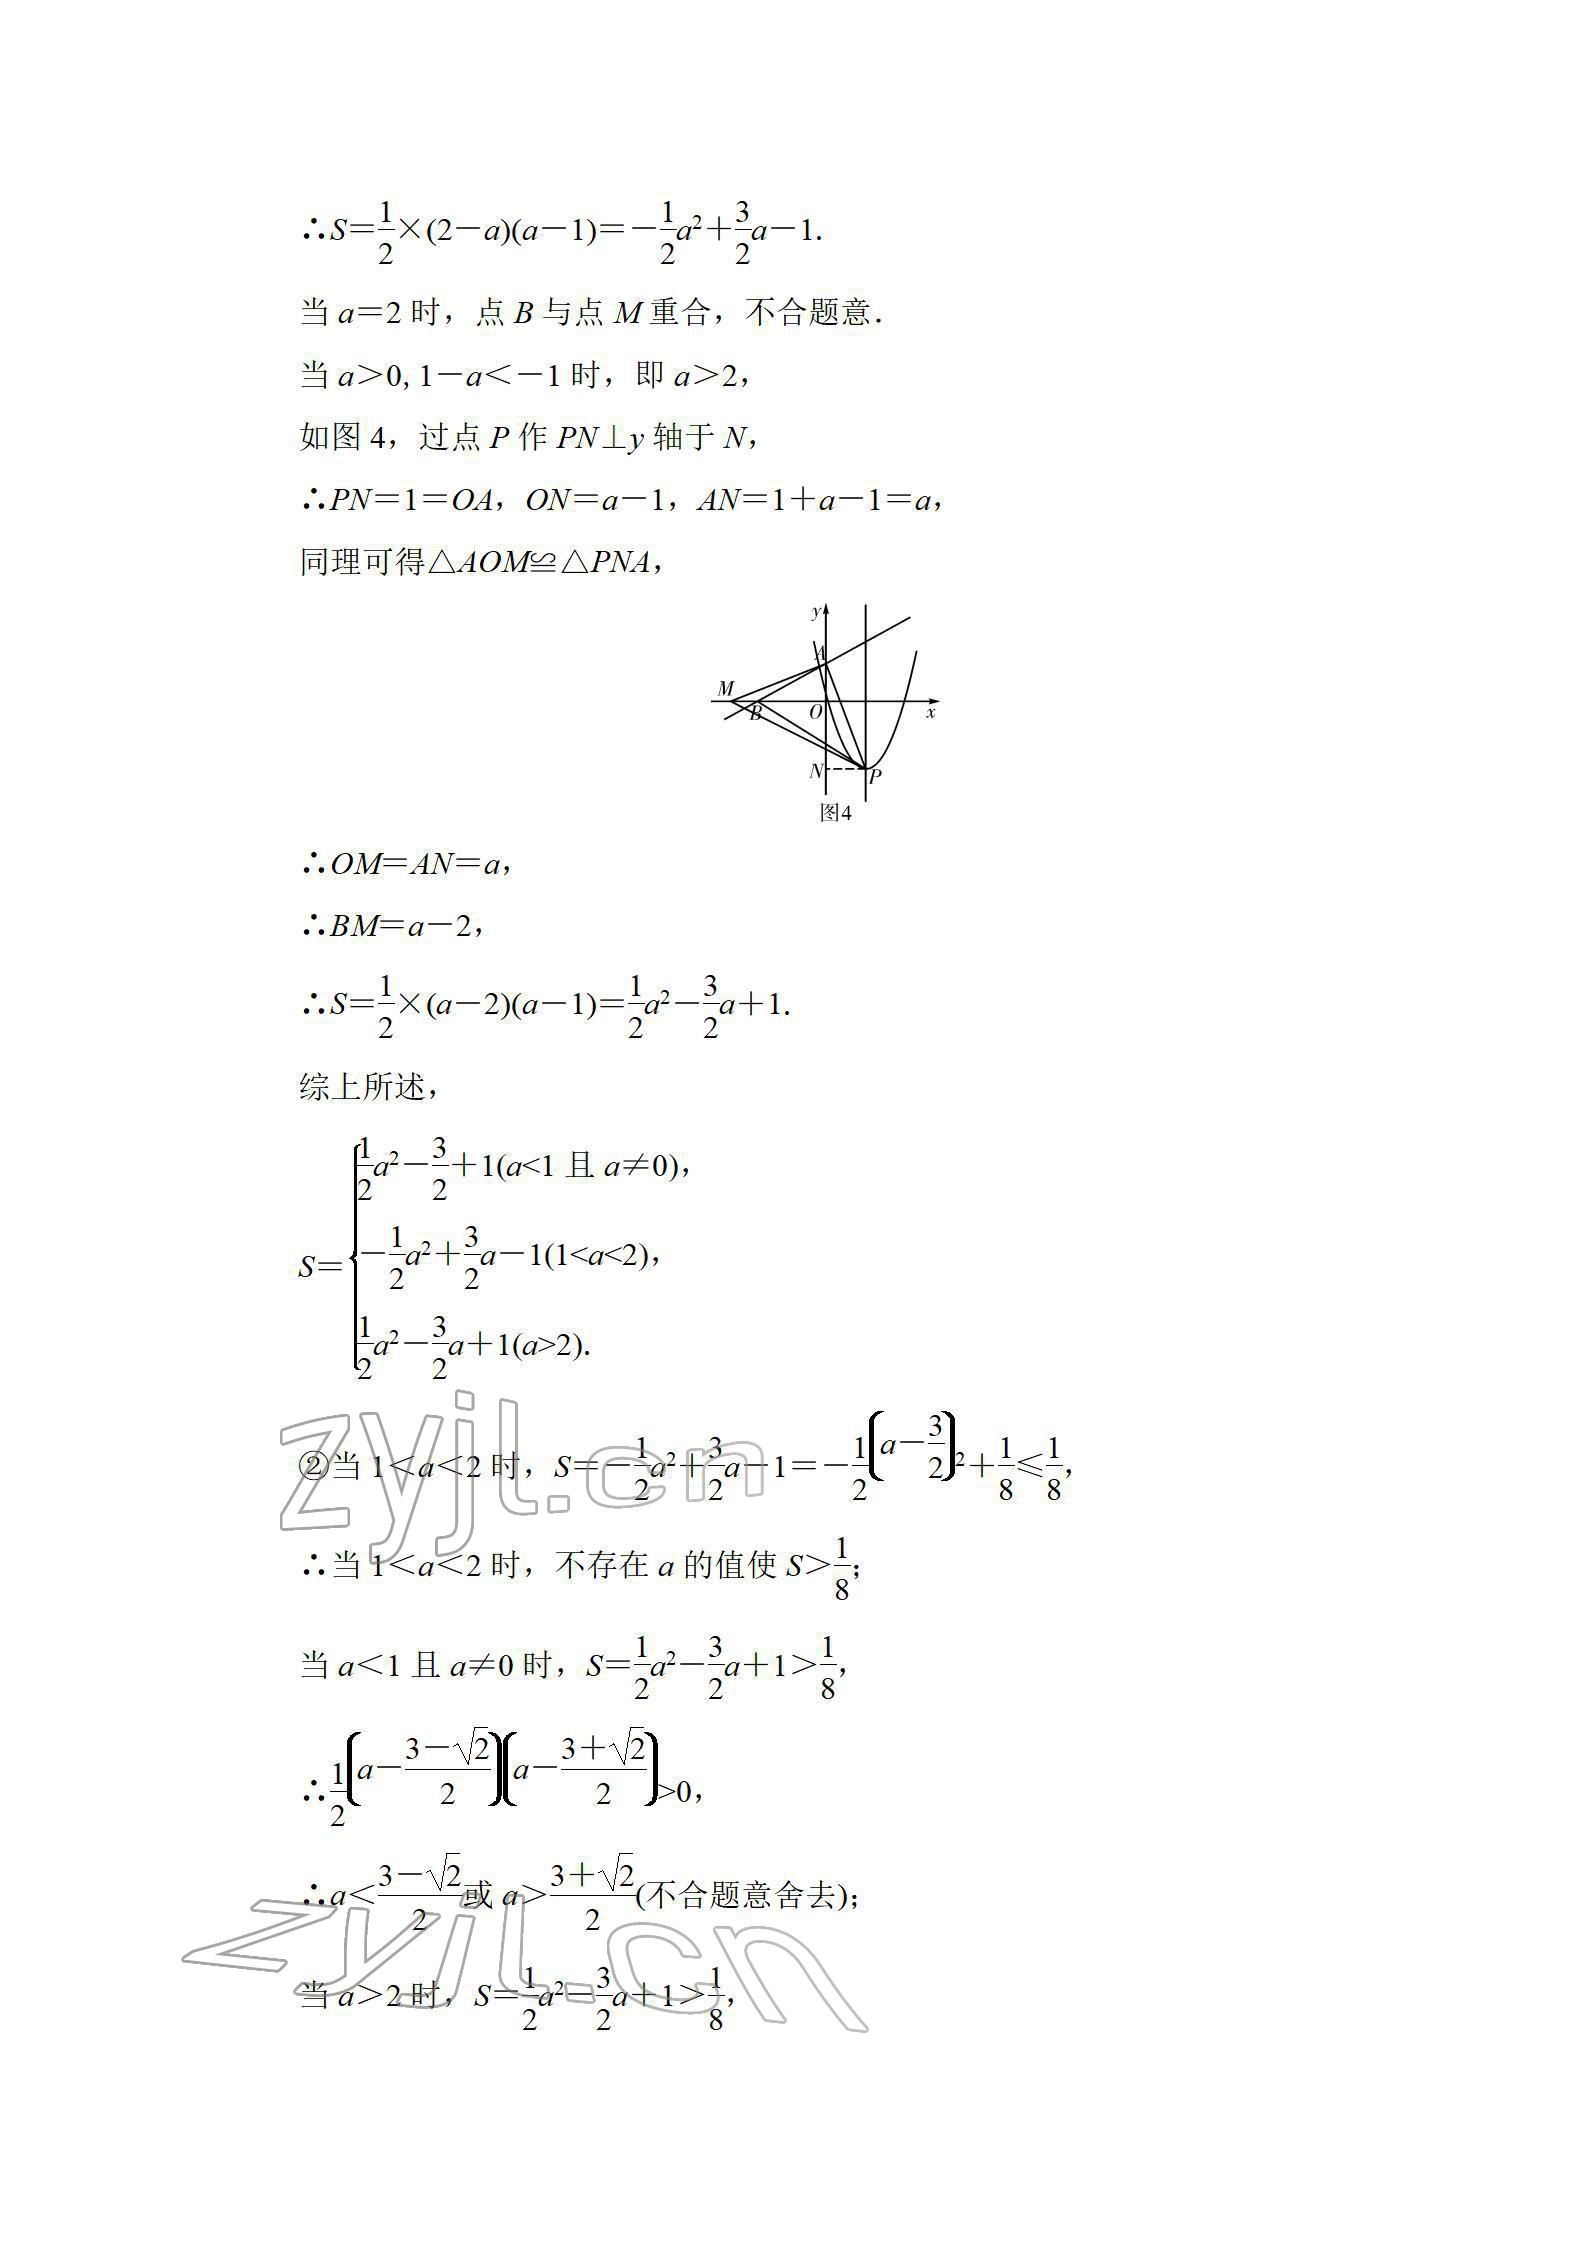 ∴S=1/2×(2-a)(a-1)=-1/2a²+3/2a-1.
当 a=2 时，点 B 与点 M 重合，不合题意.
当 a>0, 1-a<-1 时，即 a>2，
如图 4，过点 P 作 PN⊥y 轴于 N，
∴PN=1=OA，ON=a-1，AN=1+a-1=a，
同理可得△AOM≌△PNA，
y
A
M
B
O
x
N
P
图4
∴OM=AN=a，
∴BM=a-2，
∴S=1/2×(a-2)(a-1)=1/2a²-3/2a+1.
综上所述，
S={1/2a²-3/2+1(a<1 且 a≠0)，
-1/2a²+3/2a-1(1<a<2)，
1/2a²-3/2a+1(a>2).
②当 1<a<2 时，S=-1/2a²+3/2a-1=-1/2(a-3/2)²+1/8≤1/8，
∴当 1<a<2 时，不存在 a 的值使 S>1/8；
当 a<1 且 a≠0 时，S=1/2a²-3/2a+1>1/8，
∴1/2(a-(3-√2)/2)(a-(3+√2)/2)>0，
∴a<(3-√2)/2或 a>(3+√2)/2(不合题意舍去)；
当 a>2 时，S=1/2a²-3/2a+1>1/8，
zyjl.cn
zyjl.cn